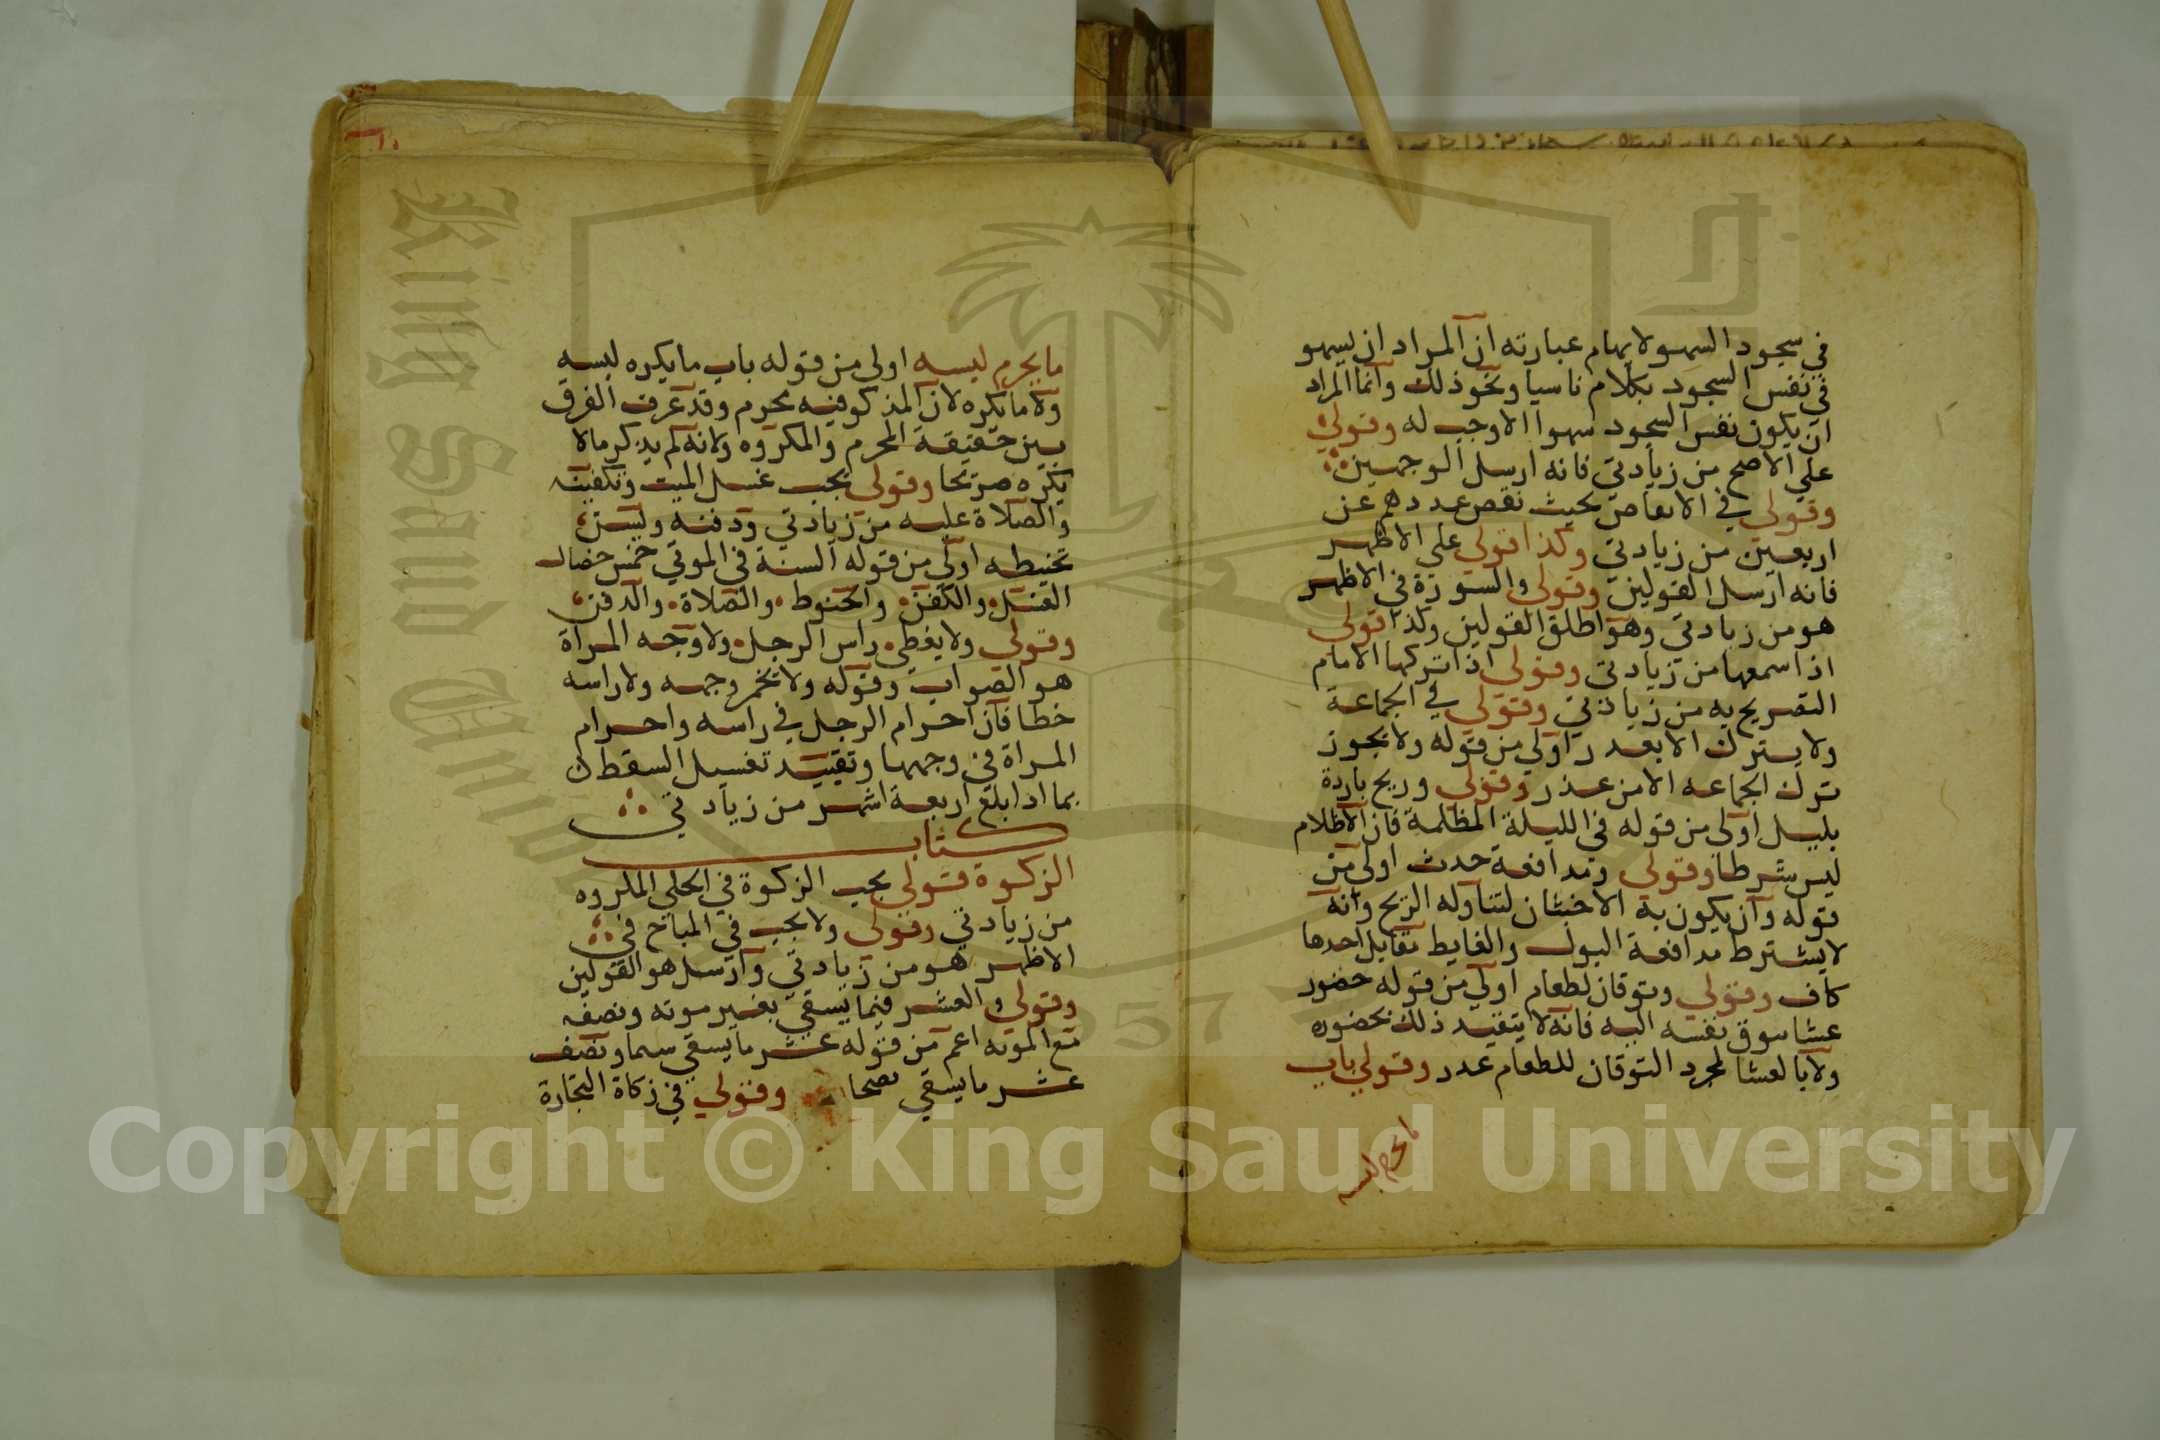 في سجود السهو لايهام عبارته ان المراد ان يسهو
في نفس السجود بكلام ناسيا ونحو ذلك وانما المراد
ان يكون نفس السجود سهوا الاوجب له وقولي
علي الاصح من زيادتي فانه ارسل الوجهين
وقولي في الانفاض بحيث نقص عددهم عن
اربعين من زيادتي وكذا قولي علي الاظهر
فانه ارسل القولين وقولي والسورة في الاظهر
هو من زيادتي وهو اطلق القولين وكذا قولي
اذا سمعها من زيادتي وقولي اذا تركها الامام
التصريح به من زيادتي وقولي في الجماعة
ولا يترك الا بعذر اولي من قوله ولا يجوز
ترك الجماعه الا من عذر وقولي وريح باردة
بليل اولي من قوله في الليلة المظلمة فان الاظلام
ليس شرطا وقولي ومدافعة حدث اولي من
قوله وان يكون به الاخبثان لتناوله الريح وانه
لا يشترط مدافعة البول والغايط تقابل احدها
كاف وقولي وتوقان لطعام اولي من قوله حضور
عشا سوق نفسه اليه فانه لا يتقيد ذلك بحضوره
ولا بالعشا لمجرد التوقان للطعام عدر وقولي باب
ما يحرم لبسه
١٠
ما يحرم لبسه اولي من قوله باب ما يكره لبسه
ولا ما يكره لان المذكور فيه محرم وقد عرف الفرق
بين حقيقة المحرم والمكروه ولانه لم يذكر مالا
يكره صريحا وقولي يجب غسل الميت وتكفينه
والصلاة عليه من زيادتي ودفنه ويسن
تحنيطه اولي من قوله السنة في الموتي خمس خصال
الغسل والكفن والحنوط والصلاة والدفن
وقولي ولا يغطي راس الرجل ولا وجه المراة
هو الصواب وقوله ولا يخمر وجهه ولا راسه
خطا فان احرام الرجل في راسه واحرام
المراة في وجهها وتقييد تغسيل السقط
بما اذا بلغ اربعة اشهر من زيادتي
كتاب
الزكوة قولي يجب الزكوة في الحلي المكروه
من زيادتي وقولي ولا يجب في المباح في
الاظهر هو من زيادتي وارسل هو القولين
وقولي والعشر فيما يسقي بغير موته ونصفه
مع المونه اعم من قوله عشر ما يسقي سما ونصف
عشر ما يسقي نضحا وقولي في زكاة التجارة
King Saud University
1957
Copyright © King Saud University